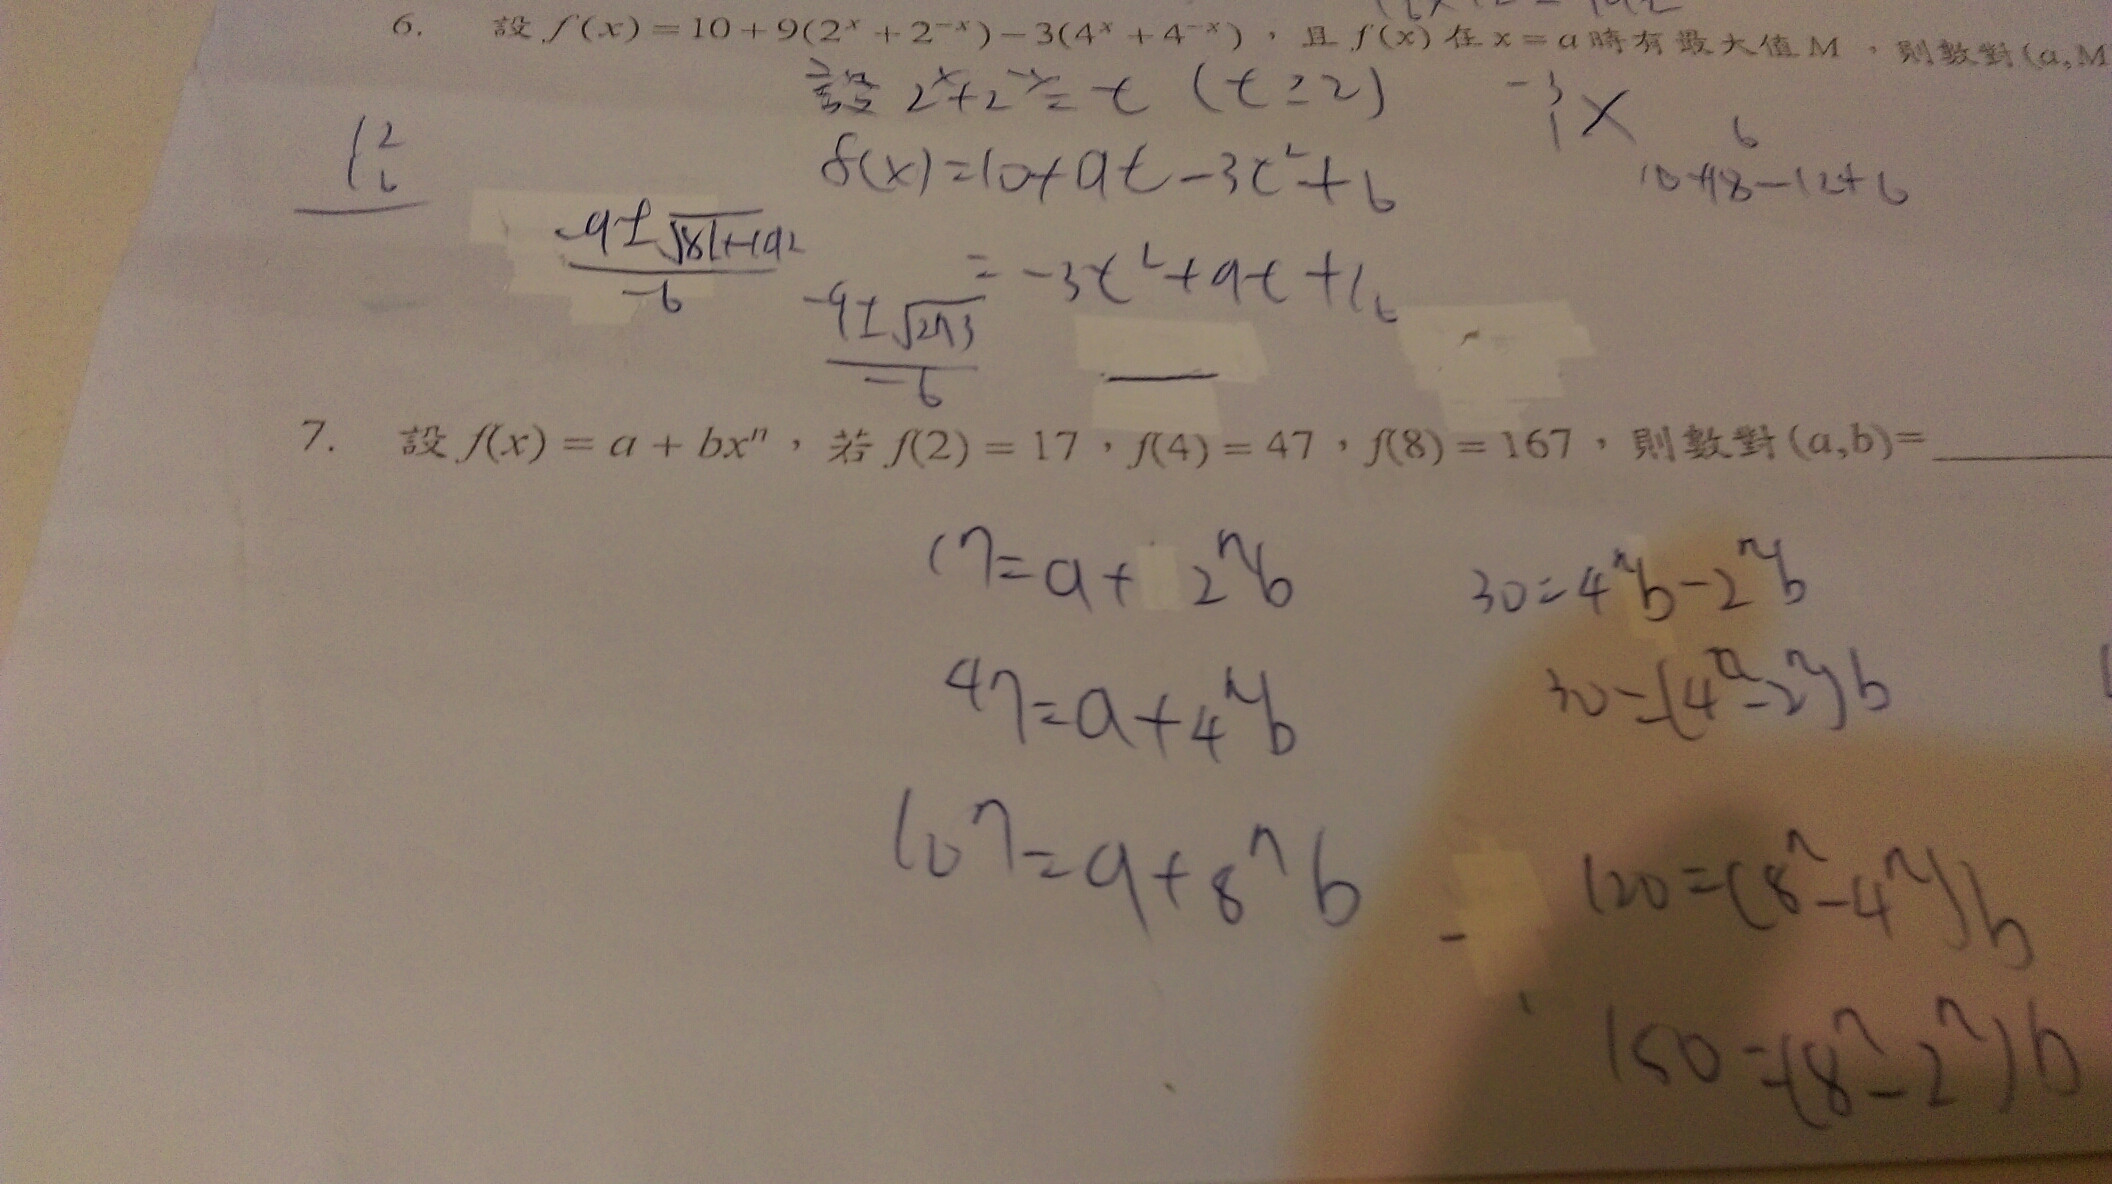 6. 設 f(x)=10+9(2ˣ+2⁻ˣ)-3(4ˣ+4⁻ˣ),且 f(x) 在 x=a 時有最大值M,則數對(a,M
設 2ˣ+2⁻ˣ=t (t≥2)
f(x)=10+9t-3t²+6
=-3t²+9t+16
-3
1
6
10+18-12+6
-9±√81+192
-6
-9±√273
-6
7. 設 f(x)=a+bxⁿ,若 f(2)=17,f(4)=47,f(8)=167,則數對(a,b)=
17=a+2ⁿb
30=4ⁿb-2ⁿb
47=a+4ⁿb
30=(4ⁿ-2ⁿ)b
167=a+8ⁿb
120=(8ⁿ-4ⁿ)b
150=(8ⁿ-2ⁿ)b